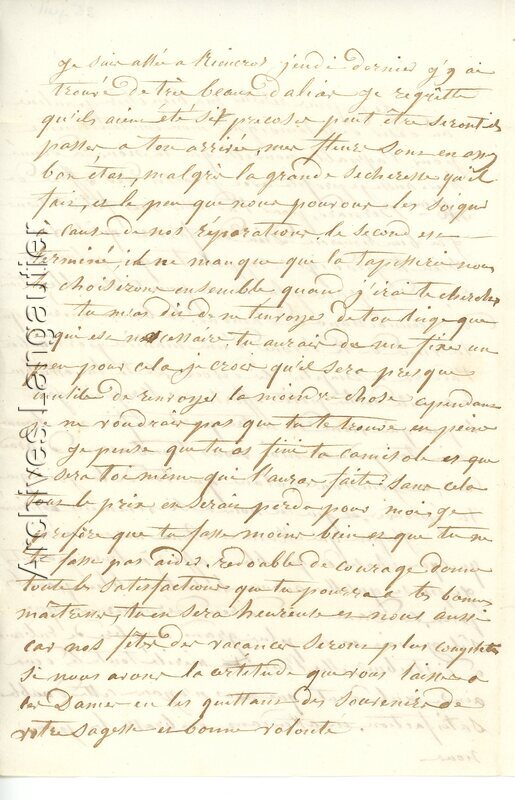 je suis allée a Rieucros jeudi dernier j'y ai
trouvé de tres beaux dalias je regrette
qu'ils aient été si precoses peut être seront ils
passes a ton arrivée, mes fleurs sont en assez
bon état, malgré la grande secheresse qu'il
fait, et le peu que nous pouvons les soigner
cause de nos réparations. le second est
terminé, il ne manque que la tapisserie nous
choisirons ensemble quand j'irai te chercher
tu m'as dit de m'envoyer de ton linge que
qui est necessaire, tu aurais du me fixer un
peu pour cela, je crois qu'il sera presque
inutile de renvoyer la moindre chose cependant
ne voudrais pas que tu te trouve en peine
je pense que tu as fini ta camisole et que
sera toi même qui l'auras faite sans cela
tout le prix en serait perdu pour moi, je
prefère que tu fasse moins bien et que tu ne
te fasse pas aider. redouble de courage donne
toutes les satisfactions que tu pourras a tes bonnes
maîtresses, tu en sera heureuse et nous aussi
car nos fêtes des vacances seront plus complètes
si nous avons la certitude que vous laissez a
ces Dames en les quittant des souvenirs de
votre sagesse et bonne volonté
Archives Langautier